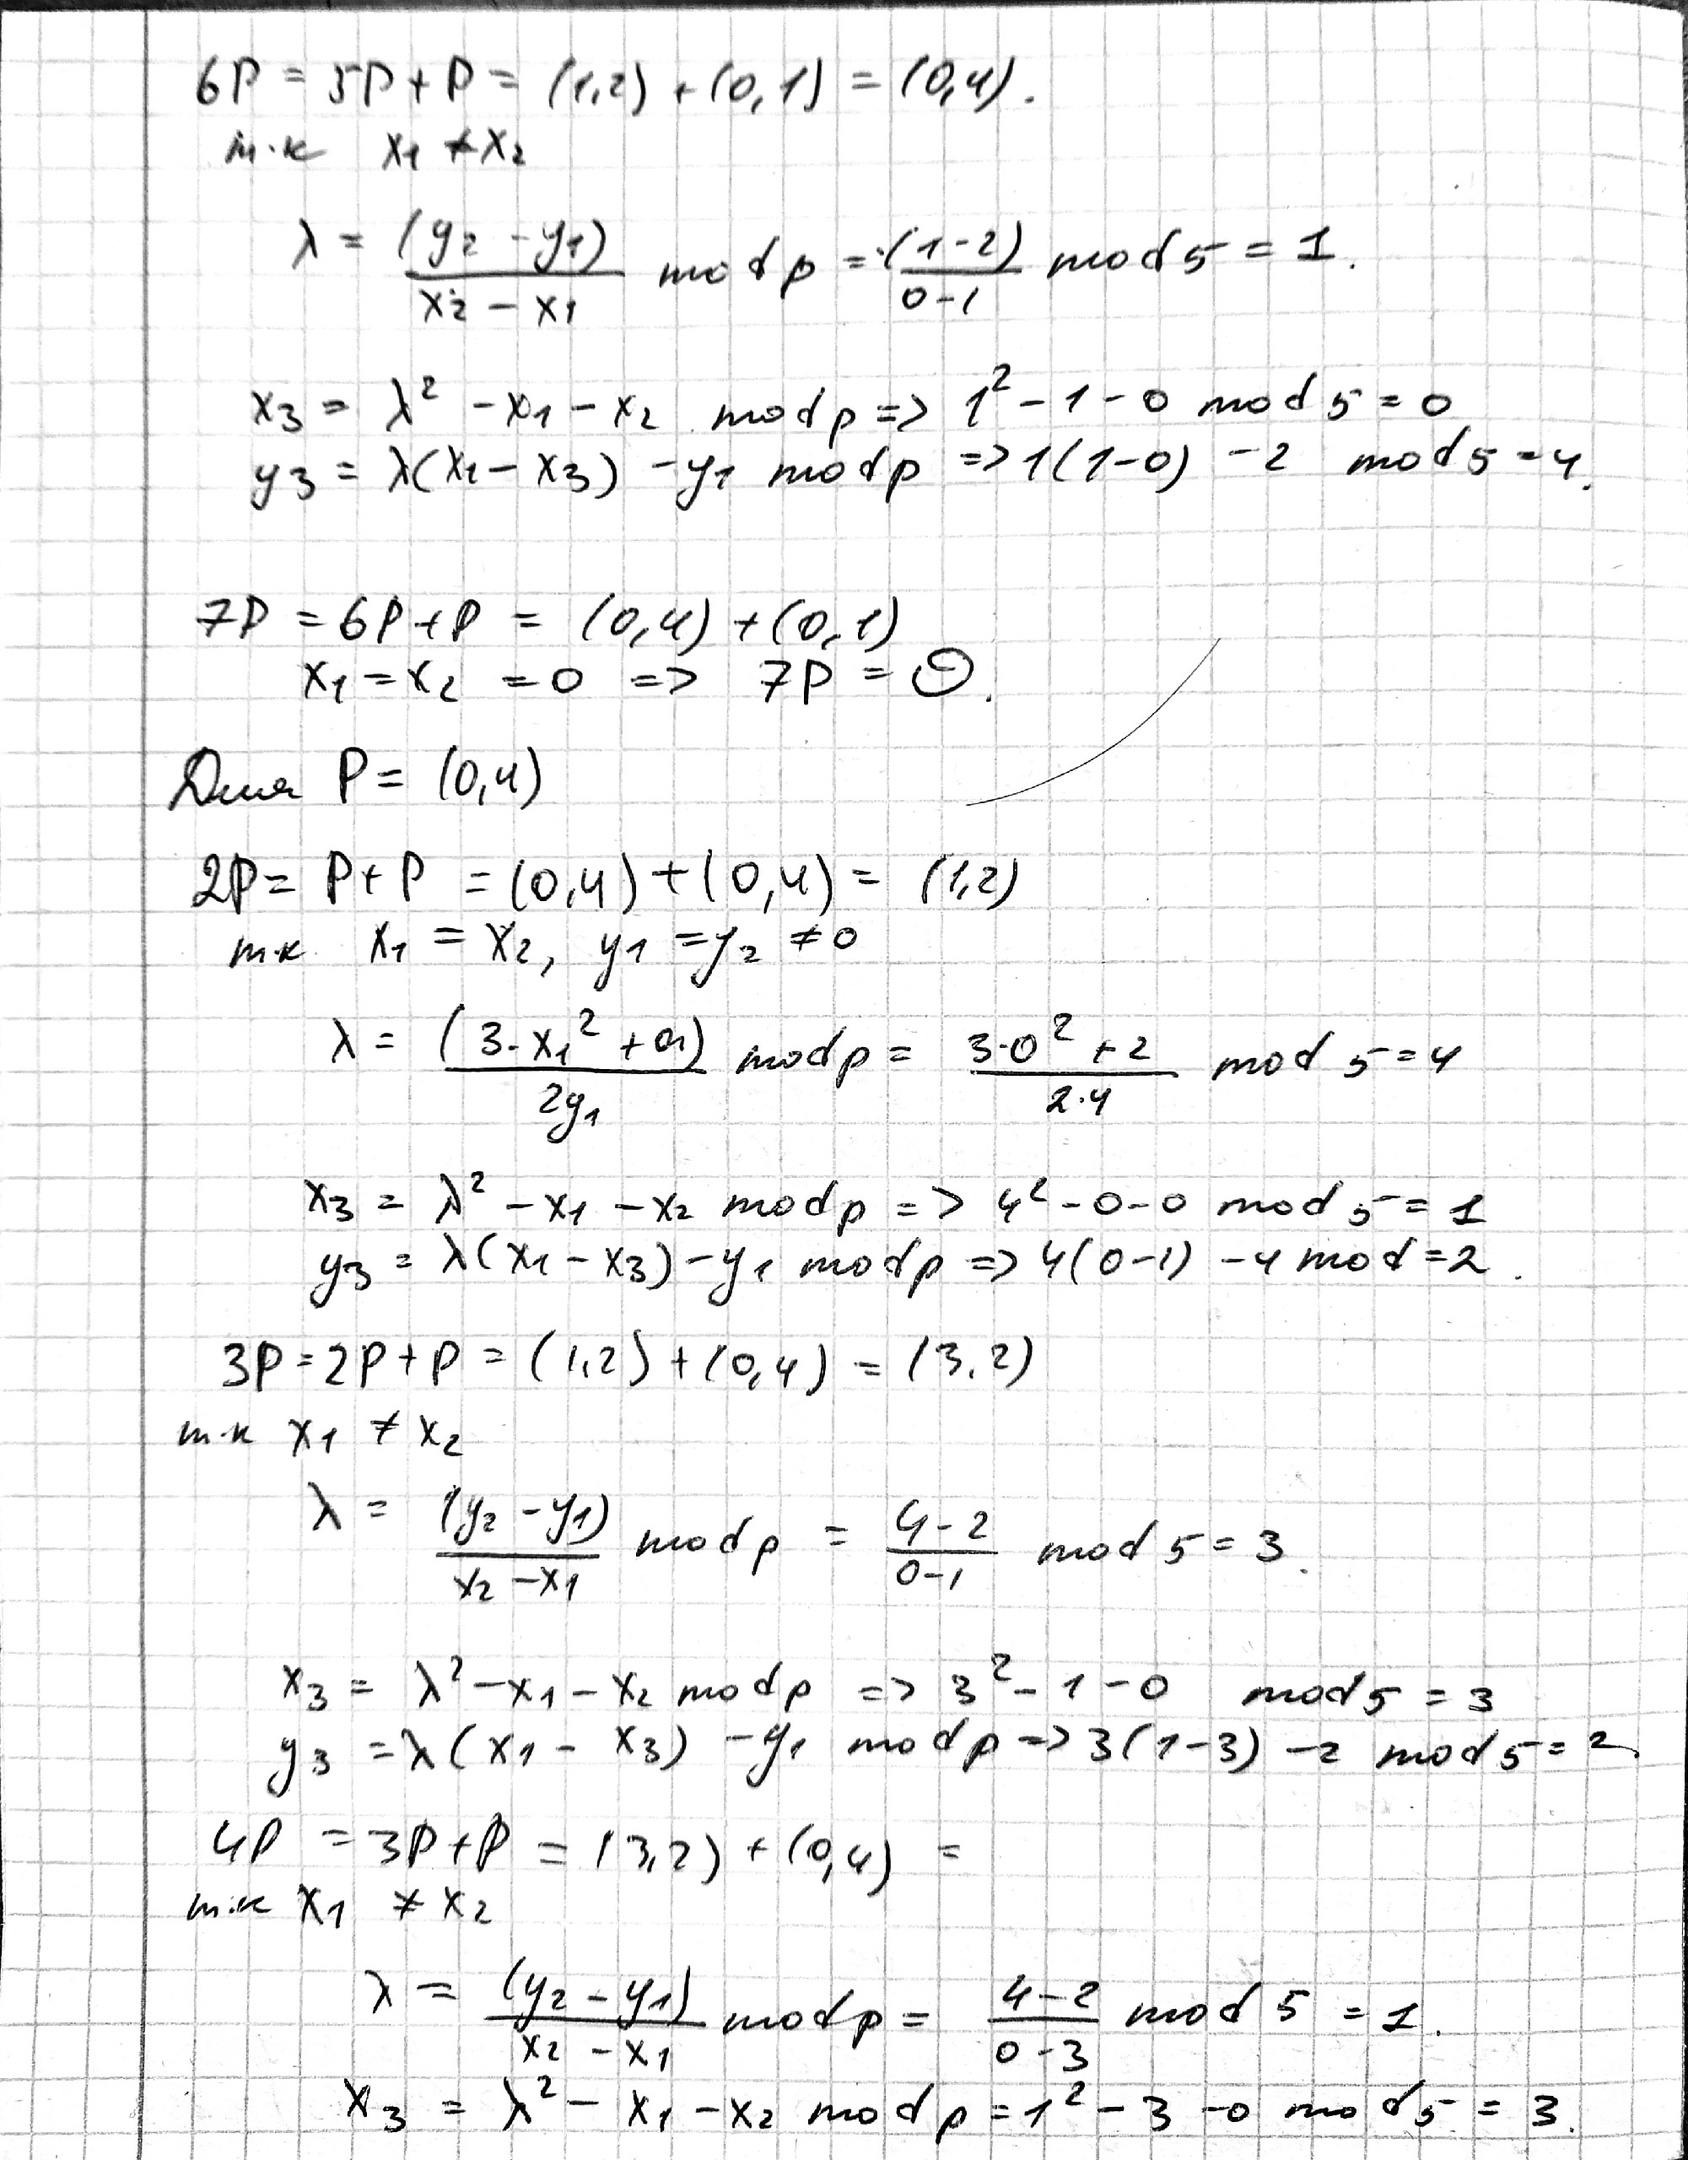 6P = 5P + P = (1,2) + (0,1) = (0,4).
т.к x₁ ≠ x₂
λ = (y₂ - y₁)/(x₂ - x₁) mod p = (1-2)/(0-1) mod 5 = 1.
x₃ = λ² - x₁ - x₂ mod p => 1² - 1 - 0 mod 5 = 0
y₃ = λ(x₁ - x₃) - y₁ mod p => 1(1-0) - 2 mod 5 = 4.
7P = 6P + P = (0,4) + (0,1)
x₁ = x₂ = 0 => 7P = O.
Для P = (0,4)
2P = P + P = (0,4) + (0,4) = (1,2)
т.к x₁ = x₂, y₁ = y₂ ≠ 0
λ = (3·x₁² + a)/2y₁ mod p = (3·0² + 2)/(2·4) mod 5 = 4
x₃ = λ² - x₁ - x₂ mod p => 4² - 0 - 0 mod 5 = 1
y₃ = λ(x₁ - x₃) - y₁ mod p => 4(0-1) - 4 mod = 2.
3P = 2P + P = (1,2) + (0,4) = (3,2)
т.к x₁ ≠ x₂
λ = (y₂ - y₁)/(x₂ - x₁) mod p = (4-2)/(0-1) mod 5 = 3.
x₃ = λ² - x₁ - x₂ mod p => 3² - 1 - 0 mod 5 = 3
y₃ = λ(x₁ - x₃) - y₁ mod p => 3(1-3) - 2 mod 5 = 2.
4P = 3P + P = (3,2) + (0,4) =
т.к x₁ ≠ x₂
λ = (y₂ - y₁)/(x₂ - x₁) mod p = (4-2)/(0-3) mod 5 = 1.
x₃ = λ² - x₁ - x₂ mod p = 1² - 3 - 0 mod 5 = 3.